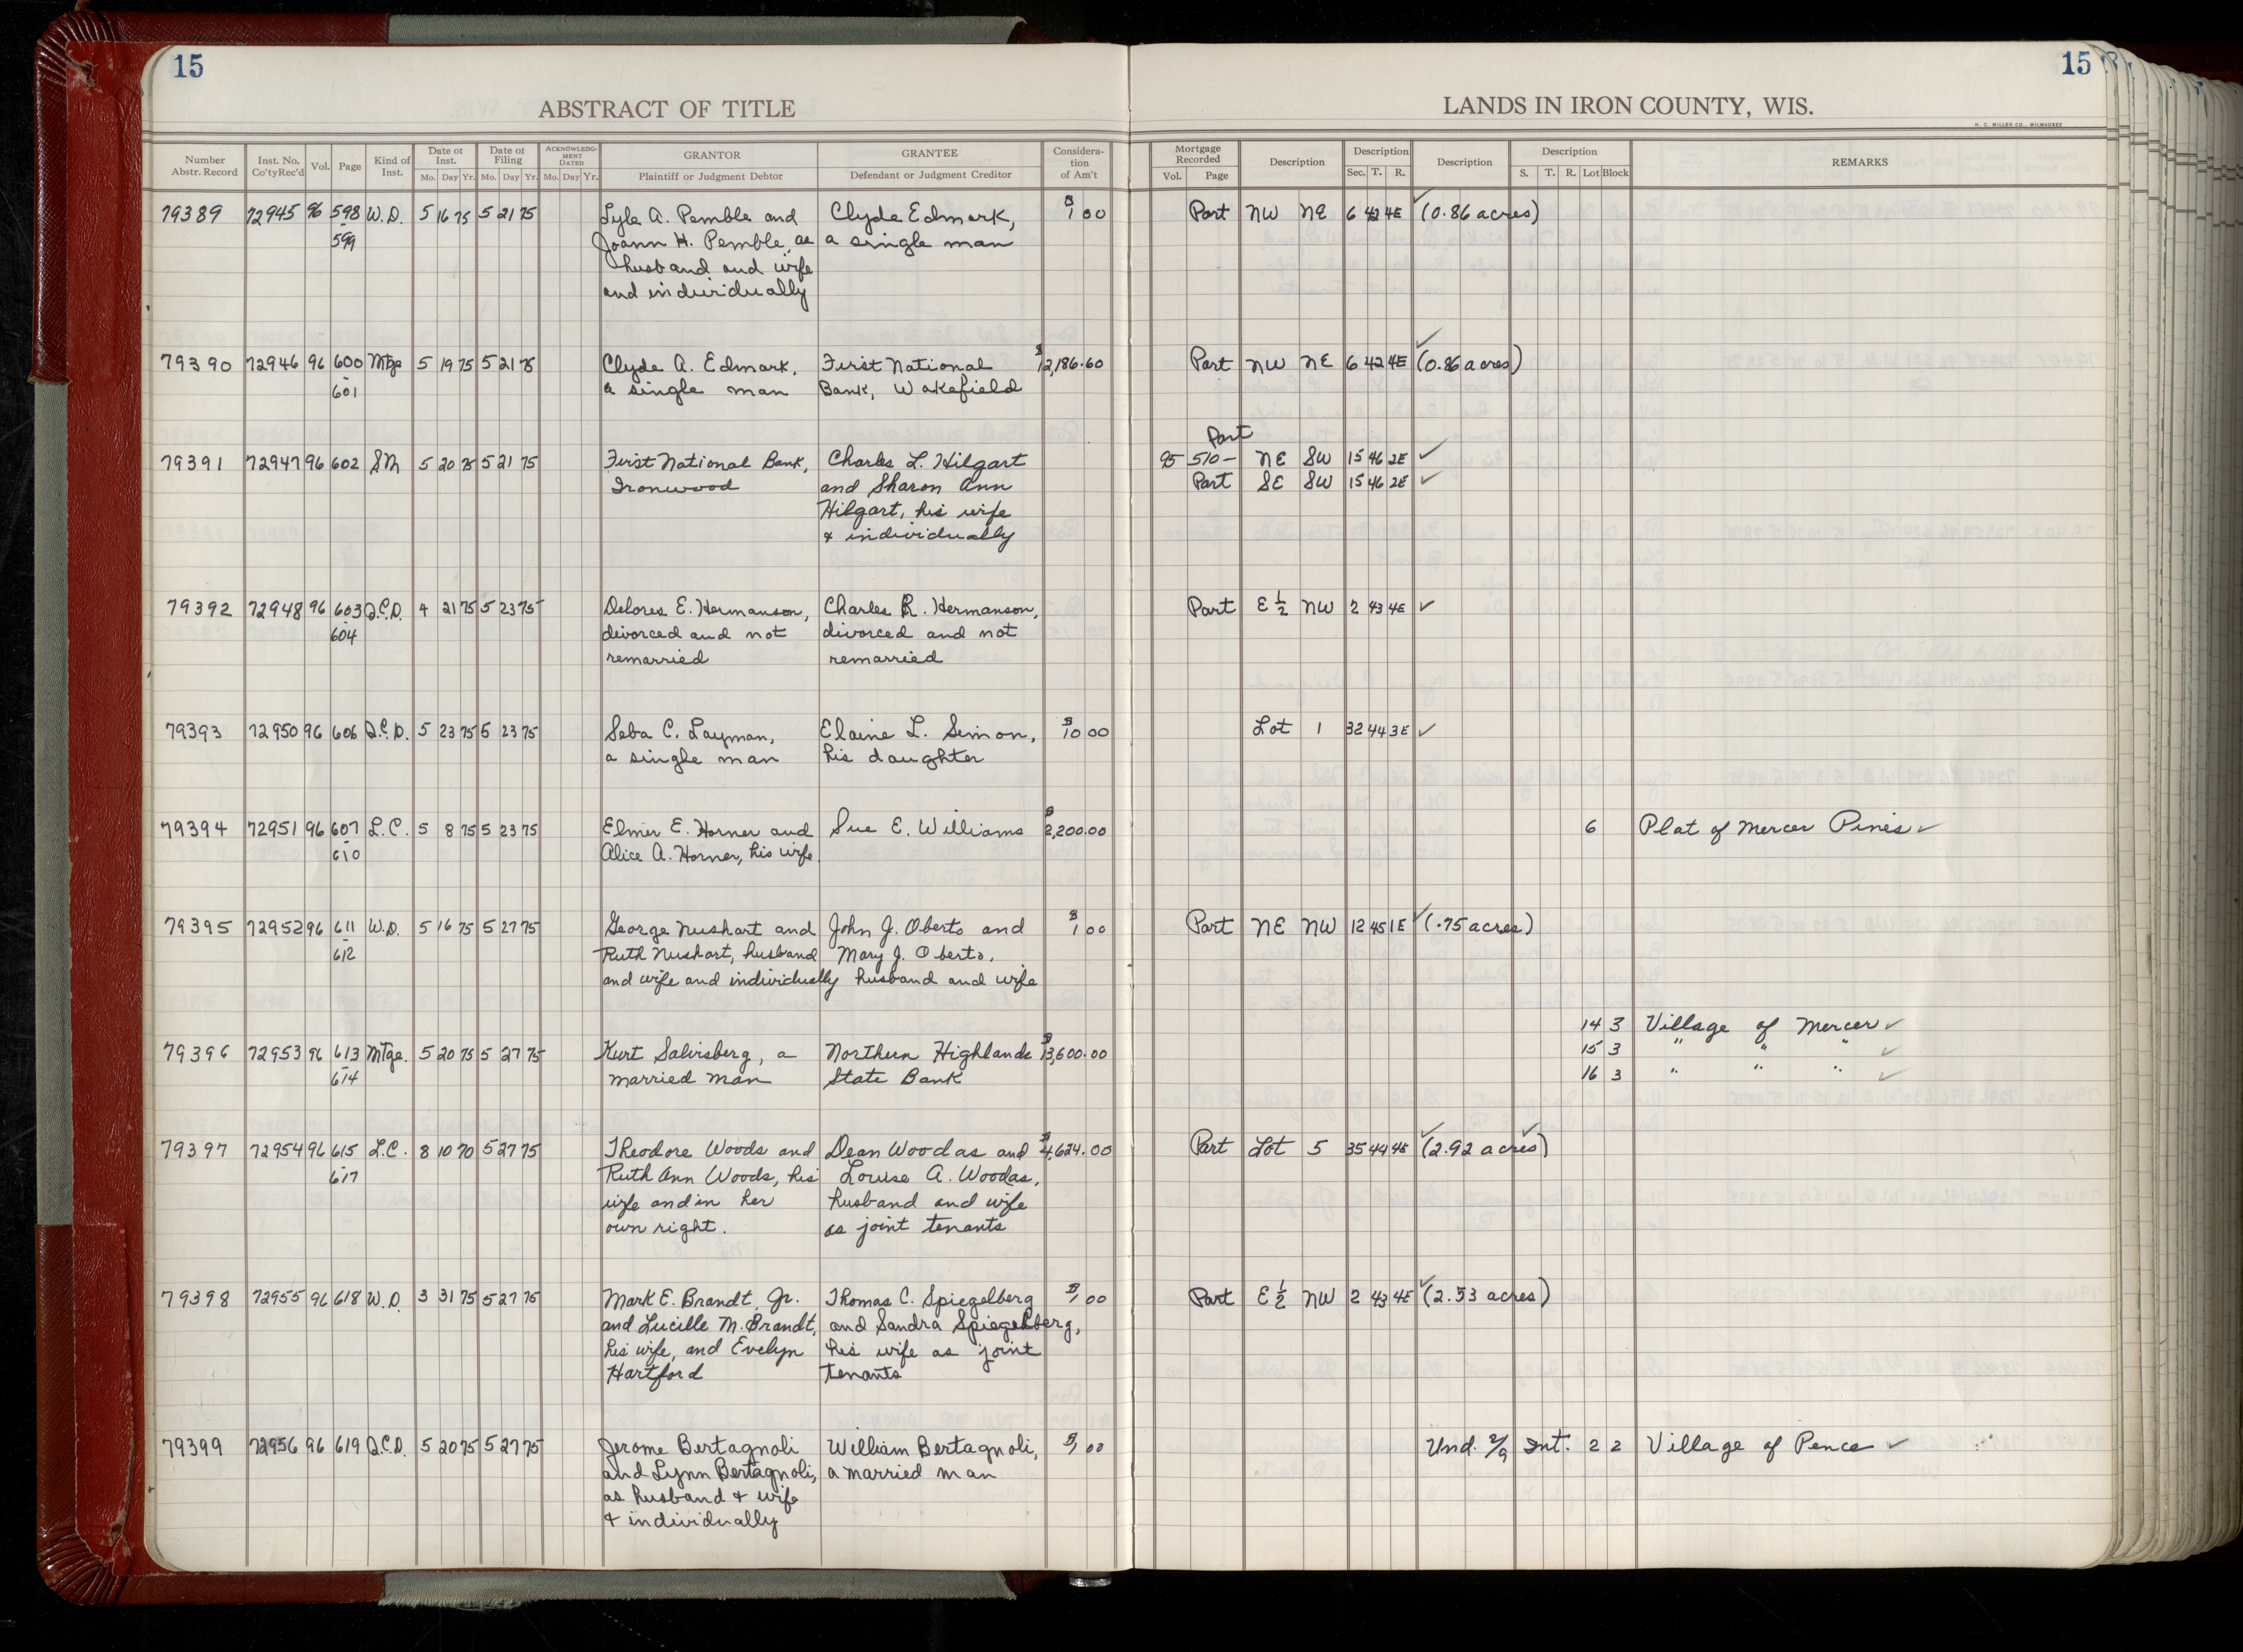 15
15
ABSTRACT OF TITLE
LANDS IN IRON COUNTY, WIS.
H. C. MILLER CO., MILWAUKEE
Number Abstr. Record Inst. No. Co'ty Rec'd Vol. Page Kind of Inst. Date of Inst. Mo. Day Yr. Date of Filing Mo. Day Yr. ACKNOWLEDG-MENT DATED Mo. Day Yr. GRANTOR Plaintiff or Judgment Debtor GRANTEE Defendant or Judgment Creditor Considera-tion of Am't Mortgage Recorded Vol. Page Description Description Sec. T. R. Description Description S. T. R. Lot Block REMARKS
79389 72945 96 598 W.D. 5 16 75 5 21 75 Lyle A. Pemble and Clyde Edmark, $ 1 00 Part NW NE 6 42 4E ✓ (0.86 acres)
- 599 Joann H. Pemble, as a single man
husband and wife
and individually
79390 72946 96 600 Mtge 5 19 75 5 21 75 Clyde A. Edmark, First National $ 12,186.60 Part NW NE 6 42 4E ✓ (0.86 acres)
- 601 a single man Bank, Wakefield
Part
79391 72947 96 602 SM 5 20 75 5 21 75 First National Bank, Charles L. Hilgart 95 510- NE SW 15 46 2E ✓
Ironwood and Sharon Ann Part SE SW 15 46 2E ✓
Hilgart, his wife
& individually
79392 72948 96 603 Q.C.D. 4 21 75 5 23 75 Delores E. Hermanson, Charles R. Hermanson, Part E ½ NW 2 43 4E ✓
- 604 divorced and not divorced and not
remarried remarried
79393 72950 96 606 Q.C.D. 5 23 75 5 23 75 Seba C. Layman, Elaine L. Simon, $ 10 00 Lot 1 32 44 3E ✓
a single man his daughter
79394 72951 96 607 L.C. 5 8 75 5 23 75 Elmer E. Horner and Sue E. Williams $ 2,200.00 6 Plat of Mercer Pines ✓
- 610 Alice A. Horner, his wife
79395 72952 96 611 W.D. 5 16 75 5 27 75 George Nushart and John J. Oberto and $ 1 00 Part NE NW 12 45 1E ✓ (.75 acres)
- 612 Ruth Nushart, husband Mary J. Oberto,
and wife and individually husband and wife
14 3 Village of Mercer ✓
79396 72953 96 613 Mtge. 5 20 75 5 27 75 Kurt Salvisberg, a Northern Highlands $ 13,600.00 15 3 " " " ✓
- 614 married man State Bank 16 3 " " " ✓
79397 72954 96 615 L.C. 8 10 70 5 27 75 Theodore Woods and Dean Woodas and $ 4,624.00 Part Lot 5 35 44 4E ✓ (2.92 acres) ✓
- 617 Ruth Ann Woods, his Louise A. Woodas,
wife and in her husband and wife
own right. as joint tenants
79398 72955 96 618 W.D. 3 31 75 5 27 75 Mark E. Brandt, Jr. Thomas C. Spiegelberg $ 1 00 Part E ½ NW 2 43 4E ✓ (2.53 acres)
and Lucille M. Brandt, and Sandra Spiegelberg,
his wife, and Evelyn his wife as joint
Hartford tenants
79399 72956 96 619 Q.C.D. 5 20 75 5 27 75 Jerome Bertagnoli William Bertagnoli, $ 1 00 Und. 2/9 Int. 2 2 Village of Pence ✓
and Lynn Bertagnoli, a married man
as husband & wife
& individually